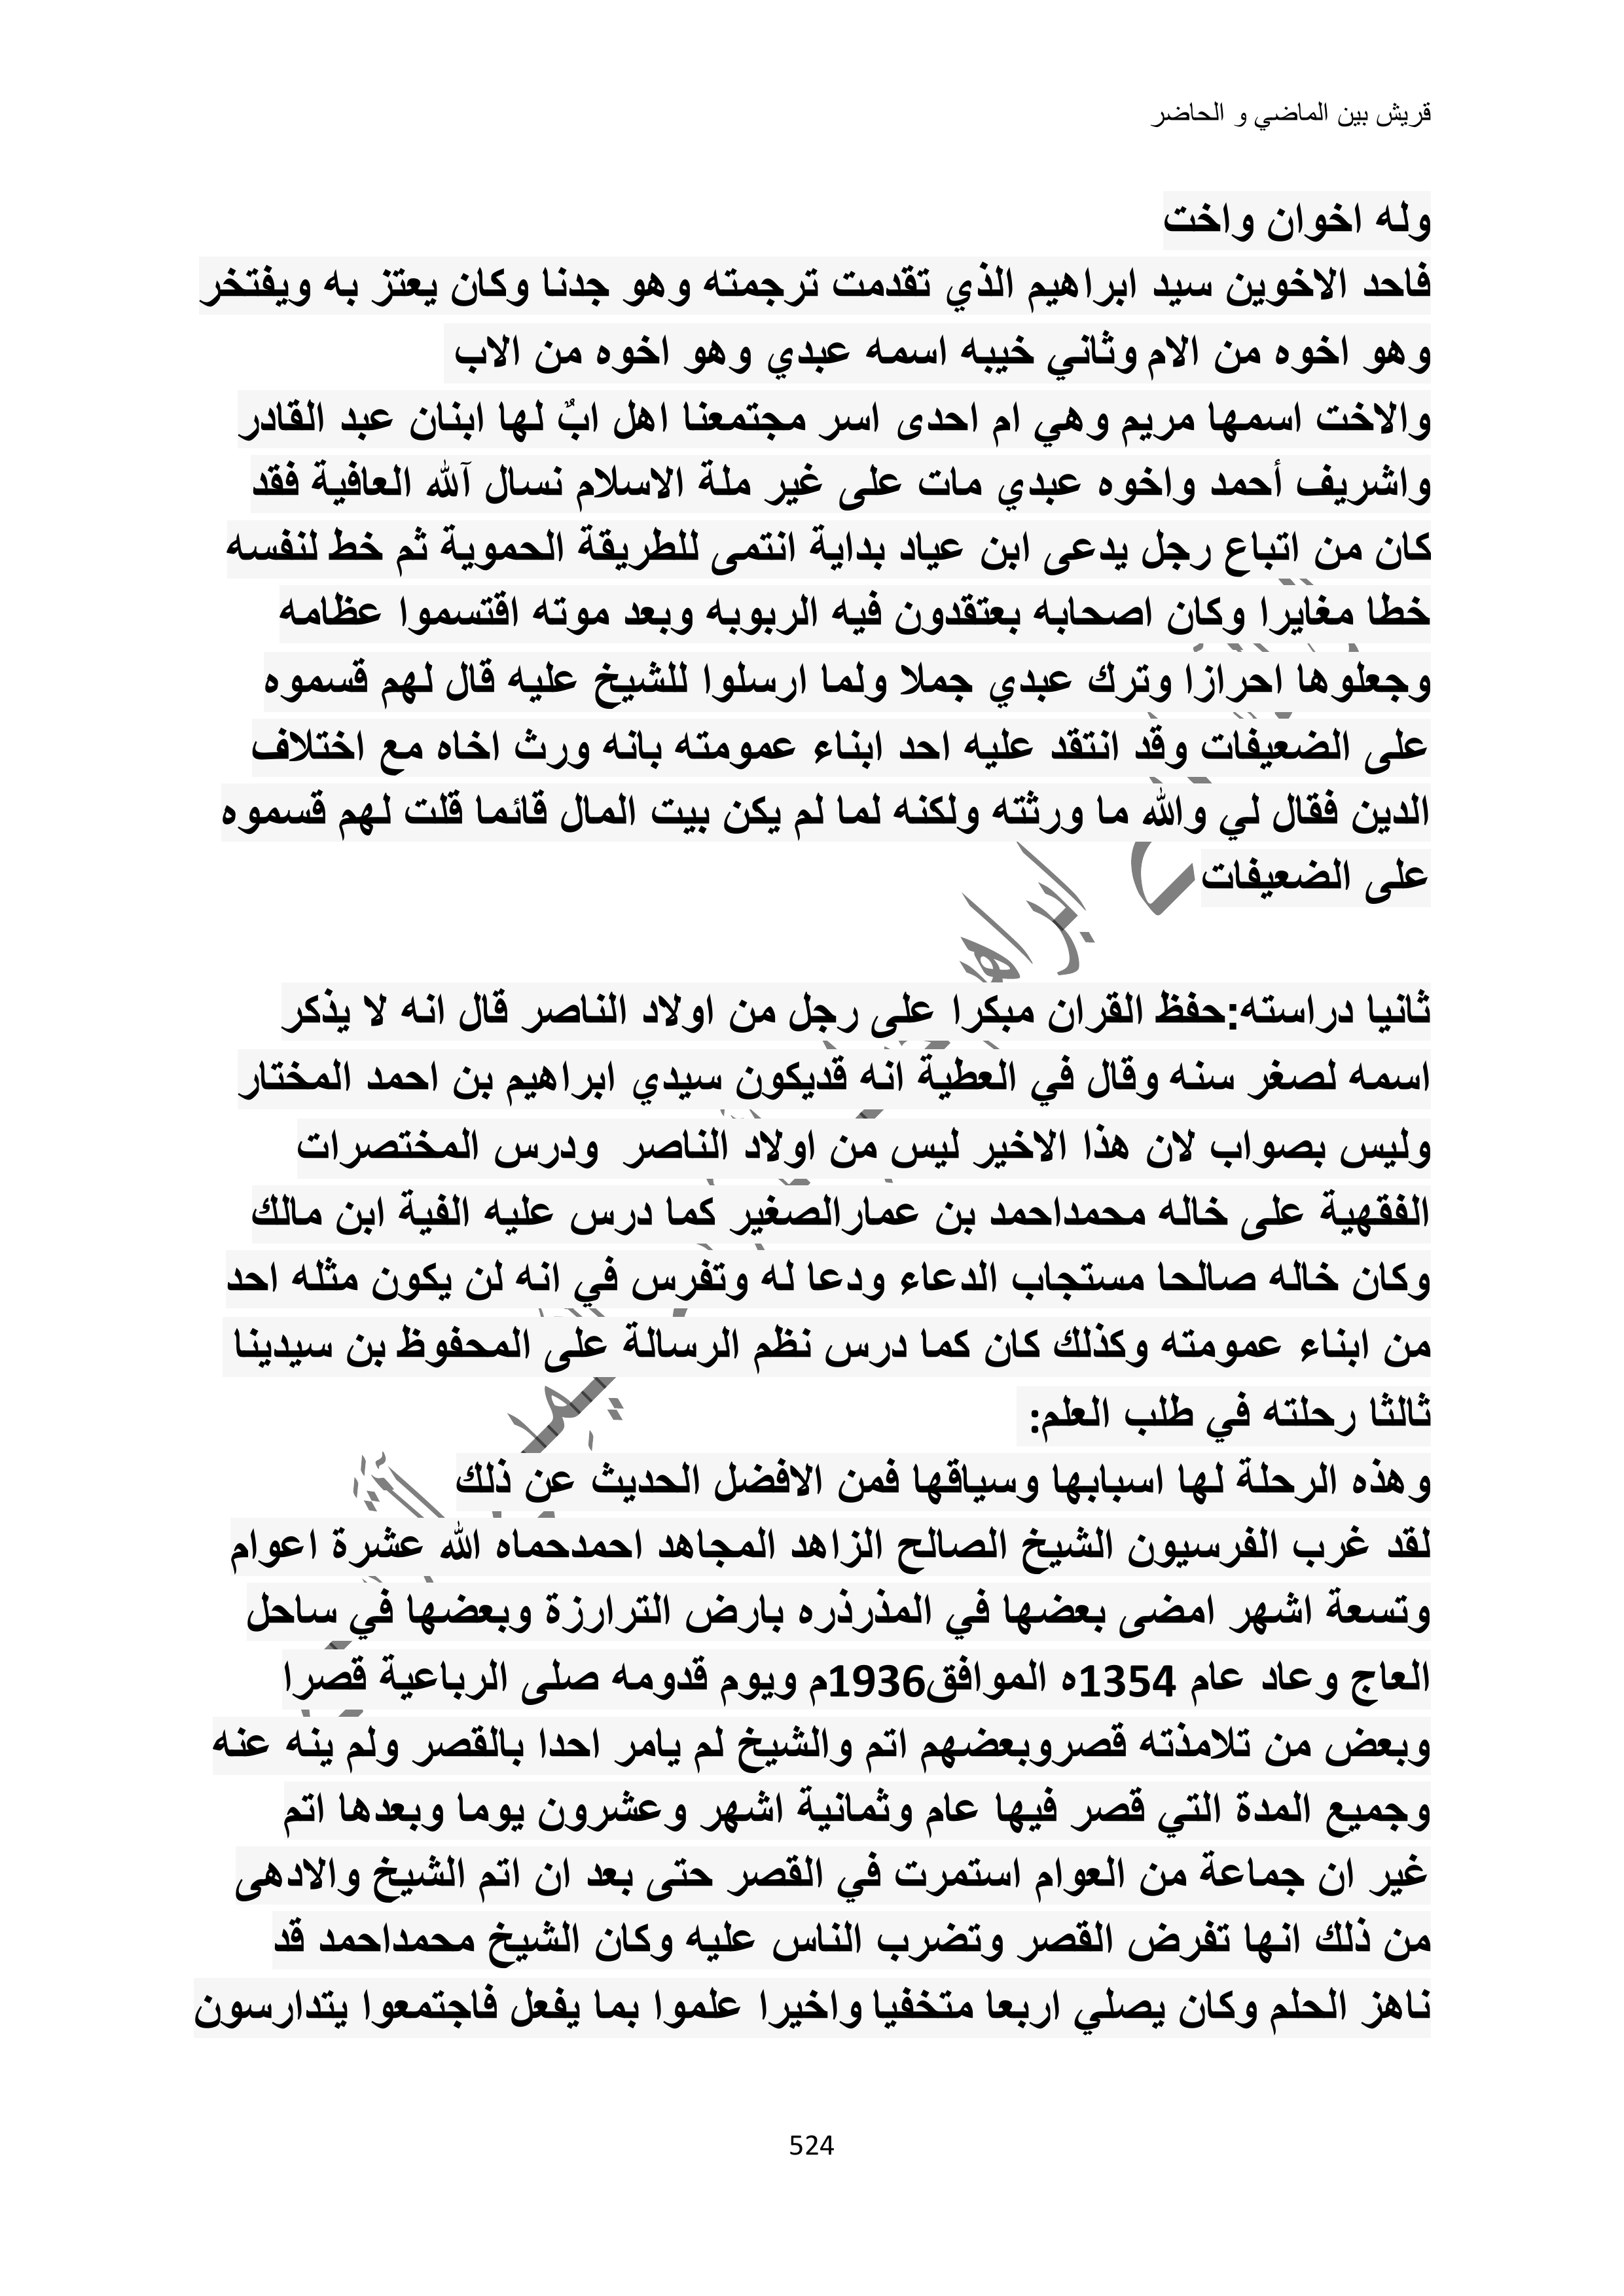 قريش بين الماضي و الحاضر
وله اخوان واخت
فاحد الاخوين سيد ابراهيم الذي تقدمت ترجمته وهو جدنا وكان يعتز به ويفتخر
وهو اخوه من الام وثاني خيبه اسمه عبدي وهو اخوه من الاب
والاخت اسمها مريم وهي ام احدى اسر مجتمعنا اهل ابٌ لها ابنان عبد القادر
واشريف أحمد واخوه عبدي مات على غير ملة الاسلام نسال آلله العافية فقد
كان من اتباع رجل يدعى ابن عياد بداية انتمى للطريقة الحموية ثم خط لنفسه
خطا مغايرا وكان اصحابه بعتقدون فيه الربوبه وبعد موته اقتسموا عظامه
وجعلوها احرازا وترك عبدي جملا ولما ارسلوا للشيخ عليه قال لهم قسموه
على الضعيفات وقد انتقد عليه احد ابناء عمومته بانه ورث اخاه مع اختلاف
الدين فقال لي والله ما ورثته ولكنه لما لم يكن بيت المال قائما قلت لهم قسموه
على الضعيفات
ثانيا دراسته:حفظ القران مبكرا على رجل من اولاد الناصر قال انه لا يذكر
اسمه لصغر سنه وقال في العطية انه قديكون سيدي ابراهيم بن احمد المختار
وليس بصواب لان هذا الاخير ليس من اولاد الناصر ودرس المختصرات
الفقهية على خاله محمداحمد بن عمارالصغير كما درس عليه الفية ابن مالك
وكان خاله صالحا مستجاب الدعاء ودعا له وتفرس في انه لن يكون مثله احد
من ابناء عمومته وكذلك كان كما درس نظم الرسالة على المحفوظ بن سيدينا
ثالثا رحلته في طلب العلم:
وهذه الرحلة لها اسبابها وسياقها فمن الافضل الحديث عن ذلك
لقد غرب الفرسيون الشيخ الصالح الزاهد المجاهد احمدحماه الله عشرة اعوام
وتسعة اشهر امضى بعضها في المذرذره بارض الترارزة وبعضها في ساحل
العاج وعاد عام 1354ه الموافق1936م ويوم قدومه صلى الرباعية قصرا
وبعض من تلامذته قصروبعضهم اتم والشيخ لم يامر احدا بالقصر ولم ينه عنه
وجميع المدة التي قصر فيها عام وثمانية اشهر وعشرون يوما وبعدها اتم
غير ان جماعة من العوام استمرت في القصر حتى بعد ان اتم الشيخ والادهى
من ذلك انها تفرض القصر وتضرب الناس عليه وكان الشيخ محمداحمد قد
ناهز الحلم وكان يصلي اربعا متخفيا واخيرا علموا بما يفعل فاجتمعوا يتدارسون
524